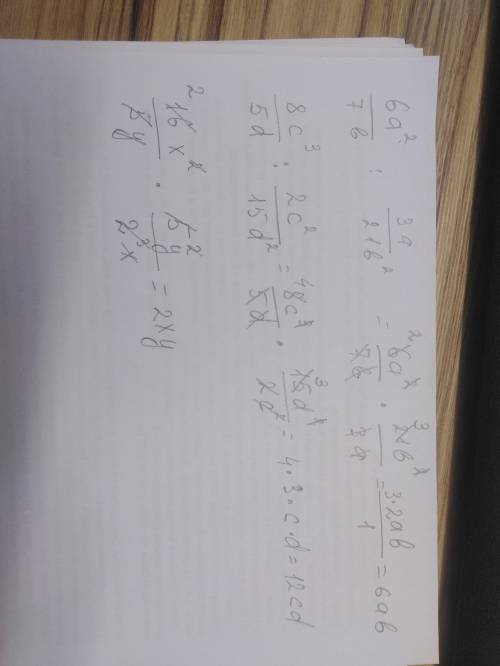 6a²/7b : 3a/21b² = ²6a²/7b · ³21b²/3a = 3·2ab/1 = 6ab
8c³/5d : 2c²/15d² = ⁴8c³/5d · ³15d²/2c² = 4·3·c·d = 12cd
²16x²/5y · 5y²/2³x = 2xy